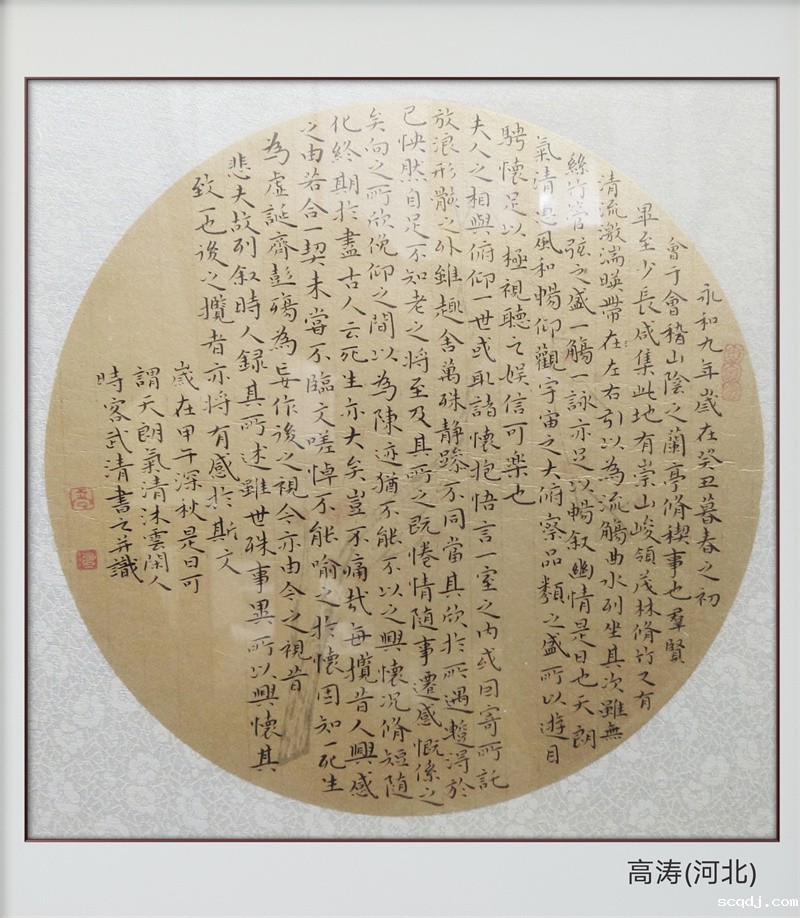 永和九年歲在癸丑暮春之初
會于會稽山陰之蘭亭脩稧事也羣賢
畢至少長咸集此地有崇山峻領茂林脩竹又有
清流激湍暎帶在左右引以為流觴曲水列坐其次雖無
絲竹管弦之盛一觴一詠亦足以暢叙幽情是日也天朗
氣清惠風和暢仰觀宇宙之大俯察品類之盛所以遊目
騁懷足以極視聽之娛信可樂也
夫人之相與俯仰一世或取諸懷抱悟言一室之內或因寄所託
放浪形骸之外雖趣舍萬殊静躁不同當其欣於所遇蹔得於
己怏然自足不知老之將至及其所之既惓情隨事遷感慨係之
矣向之所欣俛仰之間以為陳迹猶不能不以之興懷況脩短隨
化終期於盡古人云死生亦大矣豈不痛哉每攬昔人興感
之由若合一契未嘗不臨文嗟悼不能喻之於懷固知一死生
為虛誕齊彭殤為妄作後之視今亦由今之視昔
悲夫故列叙時人録其所述雖世殊事異所以興懷其
致一也後之攬者亦將有感於斯文
歲在甲午深秋是日可
謂天朗氣清沐雲閑人
時客武清書之并識
高涛(河北)
scqdj.com